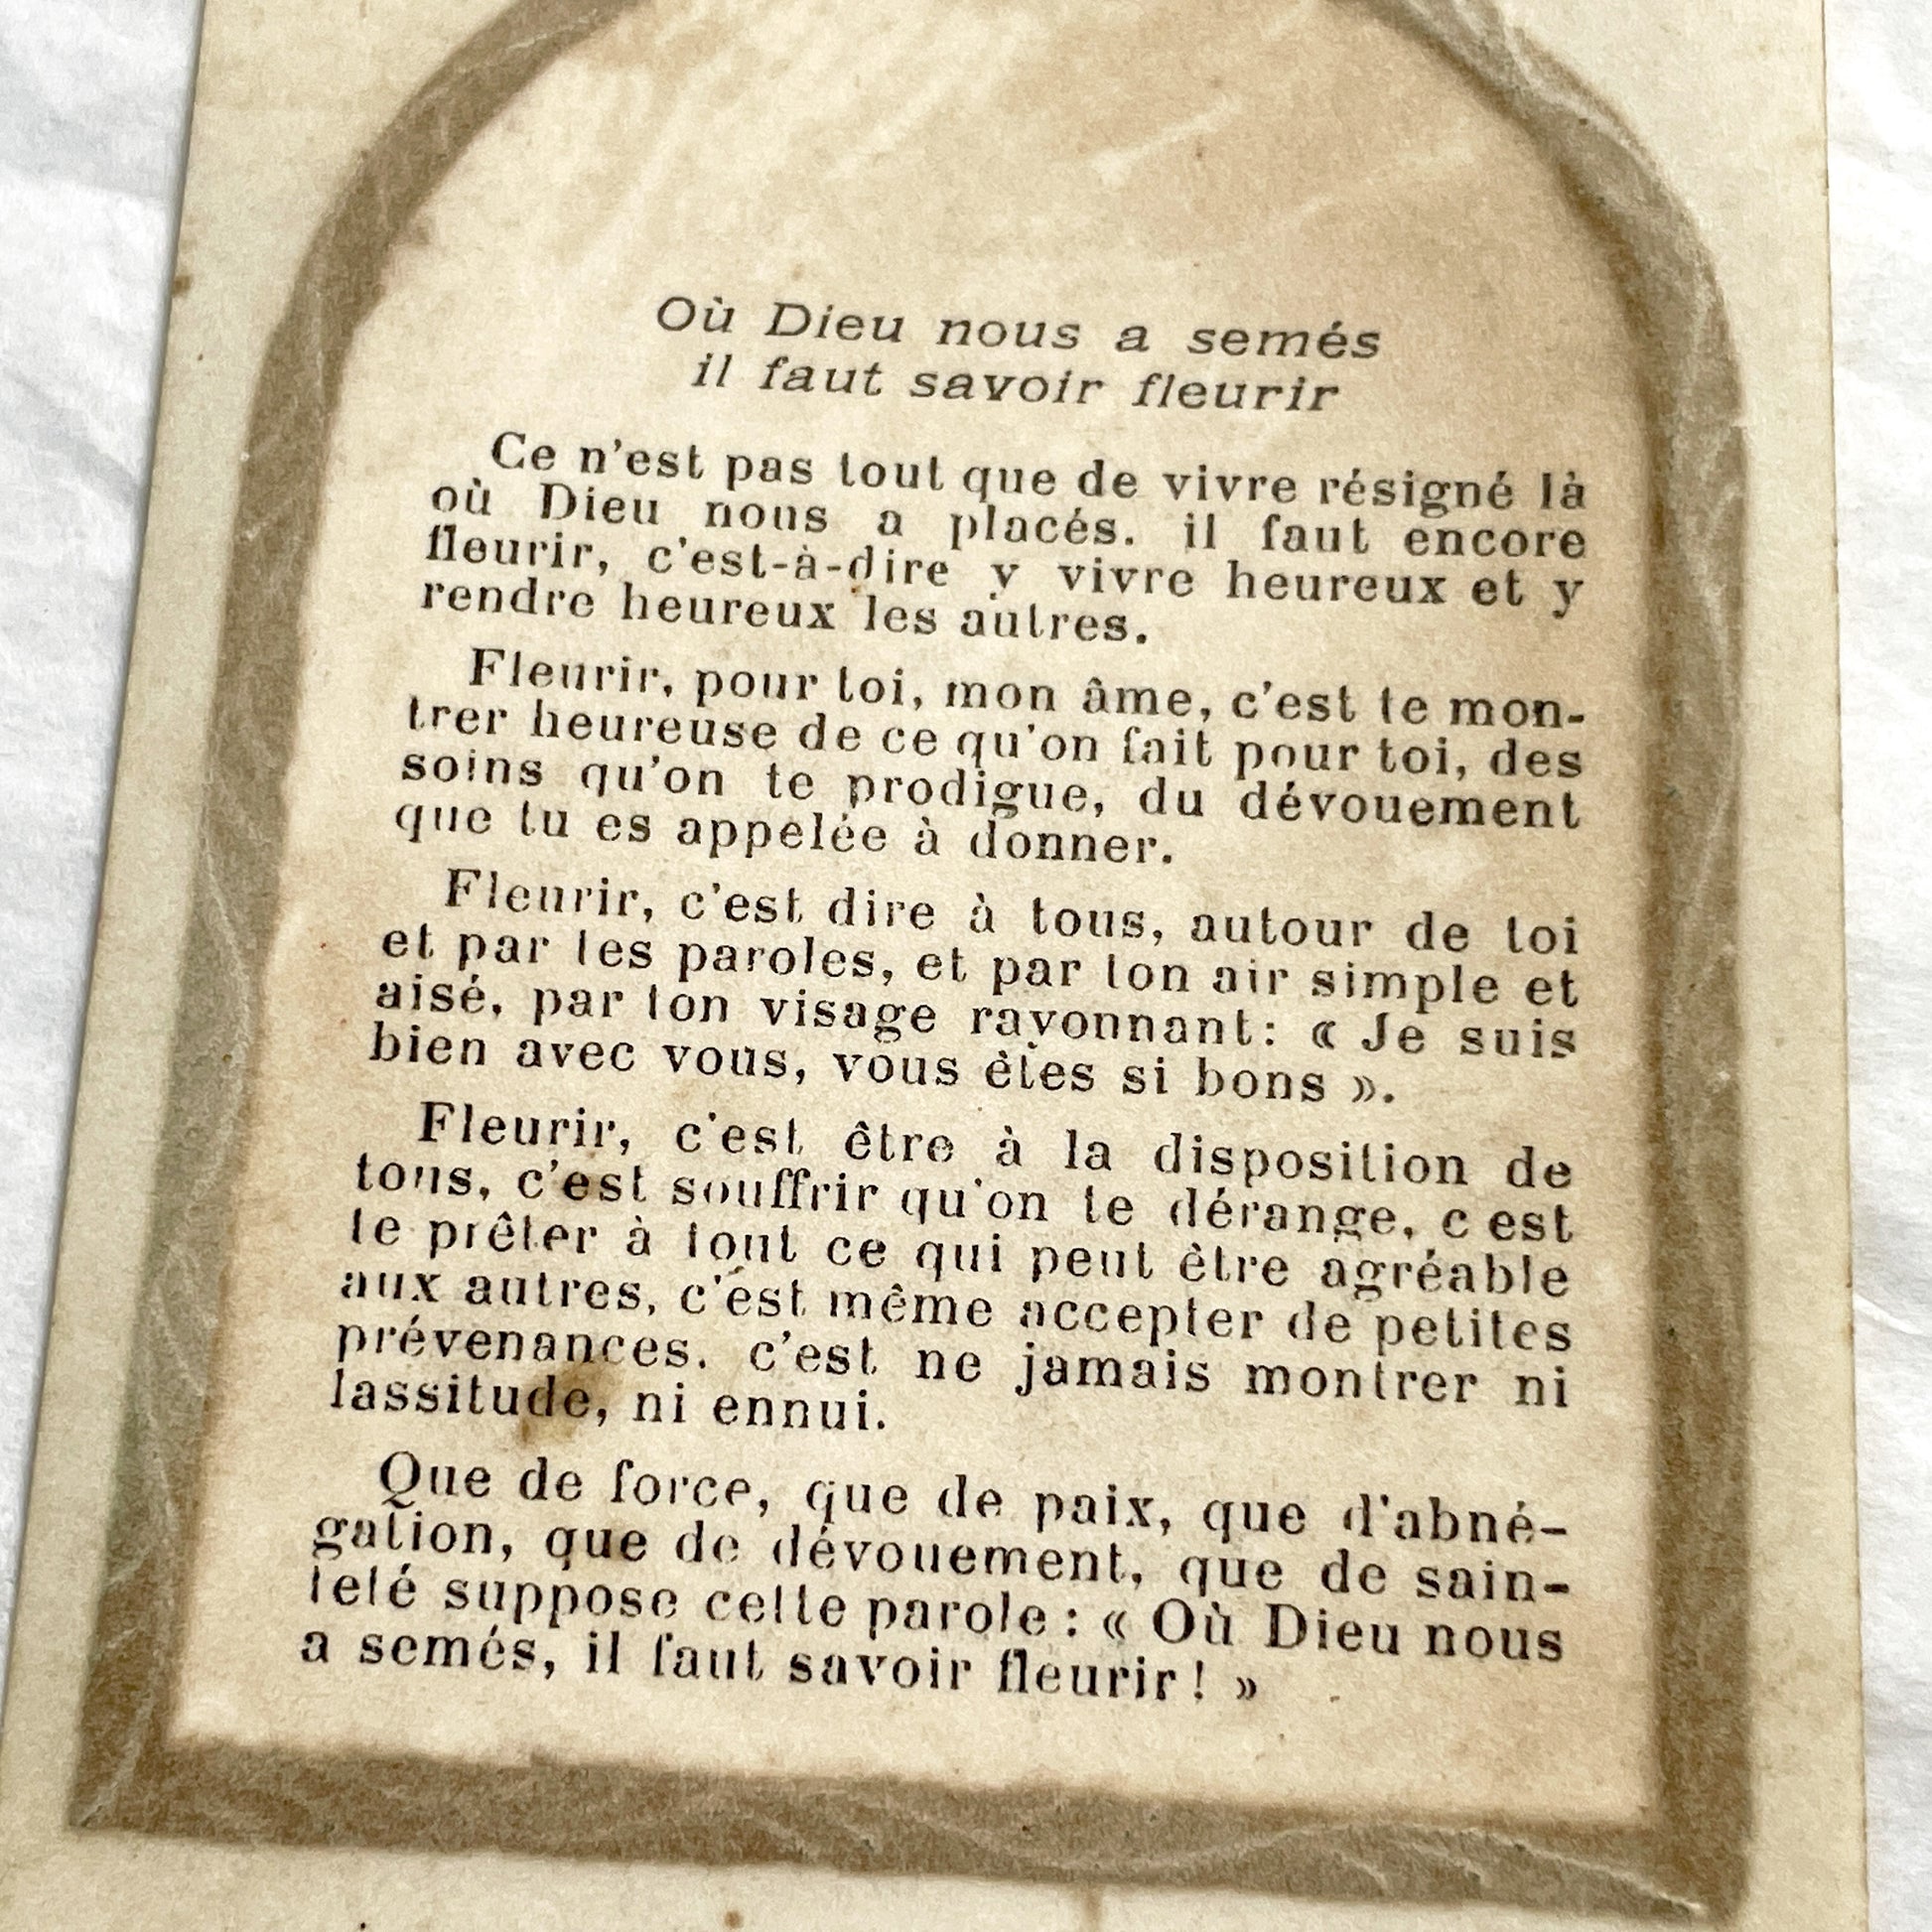 Où Dieu nous a semés
il faut savoir fleurir
Ce n'est pas tout que de vivre résigné là
où Dieu nous a placés. il faut encore
fleurir, c'est-à-dire y vivre heureux et y
rendre heureux les autres.
Fleurir, pour toi, mon âme, c'est te mon-
trer heureuse de ce qu'on fait pour toi, des
soins qu'on te prodigue, du dévouement
que tu es appelée à donner.
Fleurir, c'est dire à tous, autour de toi
et par tes paroles, et par ton air simple et
aisé, par ton visage rayonnant: « Je suis
bien avec vous, vous êtes si bons ».
Fleurir, c'est être à la disposition de
tous, c'est souffrir qu'on te dérange, c'est
te prêter à tout ce qui peut être agréable
aux autres, c'est même accepter de petites
prévenances. c'est ne jamais montrer ni
lassitude, ni ennui.
Que de force, que de paix, que d'abné-
gation, que de dévouement, que de sain-
teté suppose cette parole : « Où Dieu nous
a semés, il faut savoir fleurir ! »